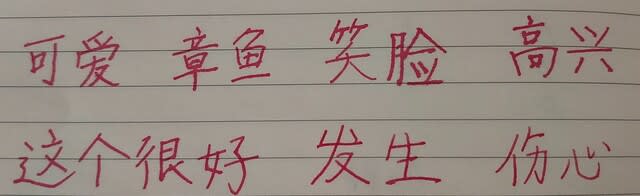 可爱 章鱼 笑脸 高兴
这个很好 发生 伤心